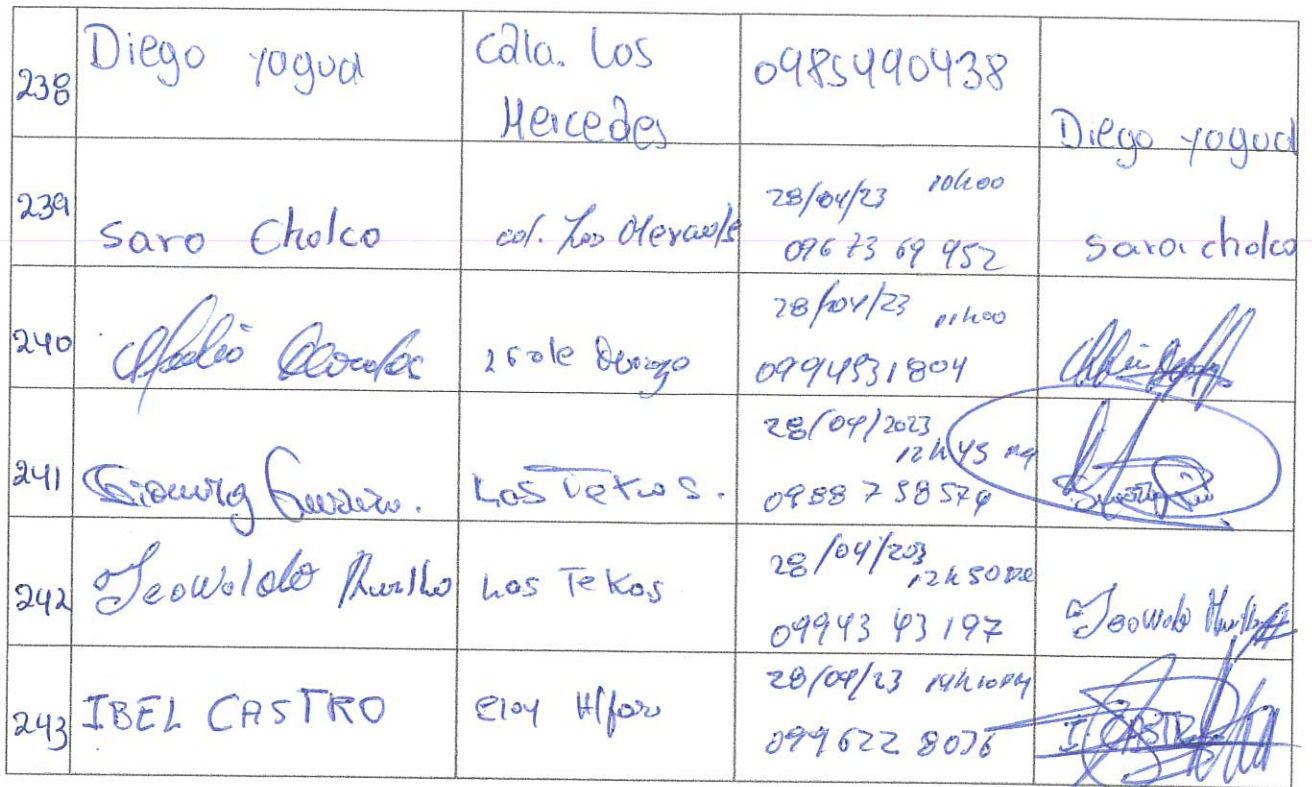 238
Diego yagual
Cdla. Los
Mercedes
0985490438
Diego yagual
239
Sara Cholco
col. Los Mercedes
28/04/23 10h00
09673 69 952
Sara cholco
240
28/04/23 11h00
0994531804
241
Guerrero.
Los Tekas.
28/04/2023
12h45
0988758574
242
Murillo
Los Tekas
28/04/203
12h50
09943 43197
243
IBEL CASTRO
Eloy Alfaro
28/04/23 14h10PM
099622 8076
I. CASTRO